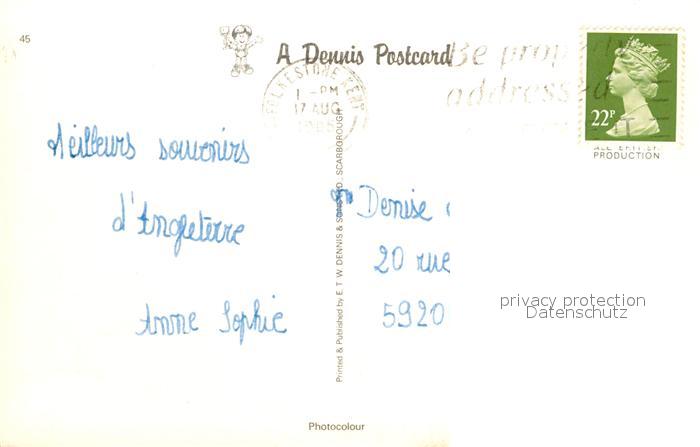 45
A Dennis Postcard
Be prop
addressed
FOLKESTONE KENT
1 - PM
17 AUG
1985
22P
ALL BRITISH
PRODUCTION
Meilleurs souvenirs
d'Angleterre
Anne Sophie
Printed & Published by E. T. W. DENNIS & SONS LTD. SCARBOROUGH
Denise
20 rue
5920
privacy protection
Datenschutz
Photocolour